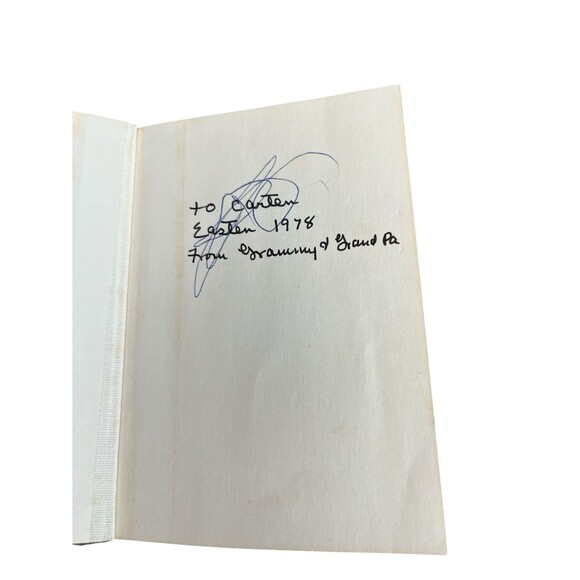 to Carter
Easter 1978
From Grammy & Grand Pa